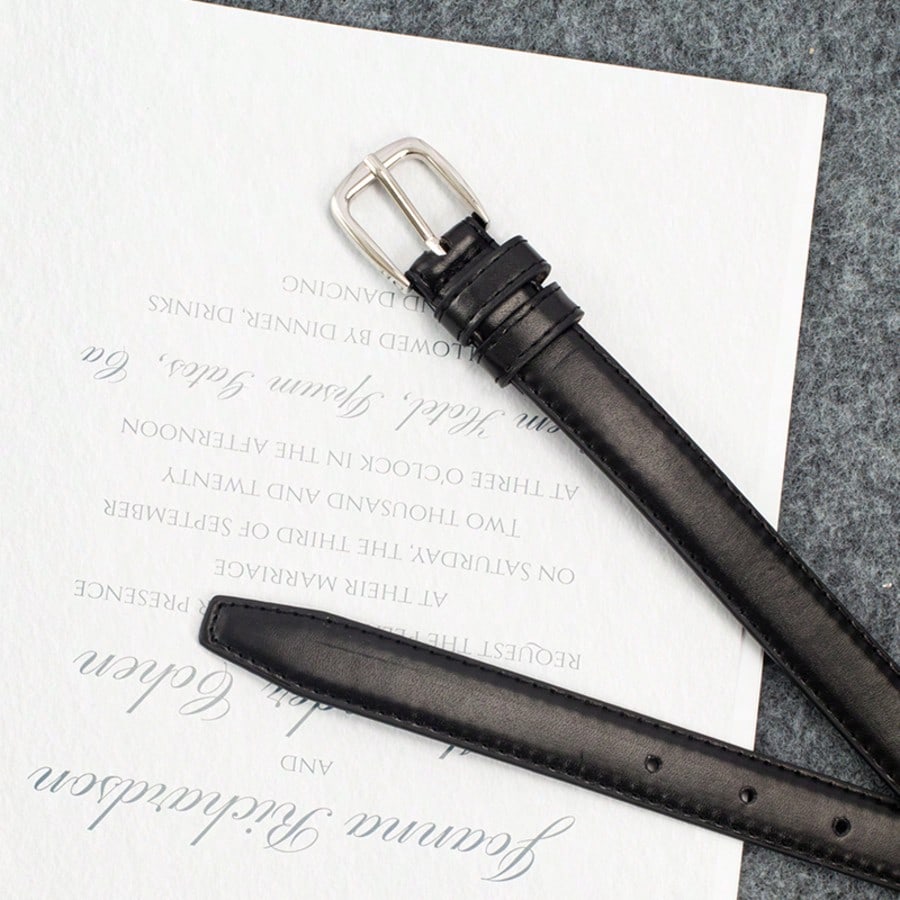 Joanna Richardson
AND
Cohen
REQUEST THE PRESENCE
AT THEIR MARRIAGE
ON SATURDAY, THE THIRD OF SEPTEMBER
TWO THOUSAND AND TWENTY
AT THREE O'CLOCK IN THE AFTERNOON
em Hotel, Ipsum Gates, Ca
LLOWED BY DINNER, DRINKS
ND DANCING